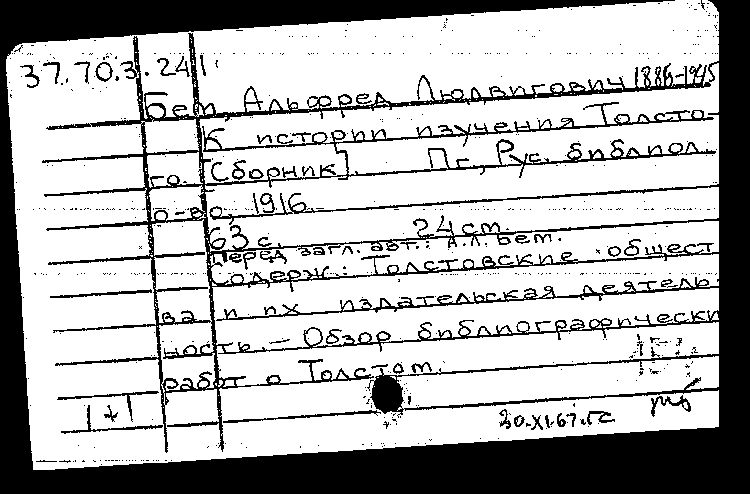 37.70.3.241
Бем, Альфред Людвигович 1886-1945
К истории изучения Толсто-
го. [Сборник]. Пг., Рус. библиол.
о-во, 1916.
63 с. 24 см.
Перед загл. авт.: А.Л. Бем.
Содерж.: Толстовские общест
ва и их издательская деятель-
ность. – Обзор библиографически
работ о Толстом.
1+1
30.XI.67. ГС